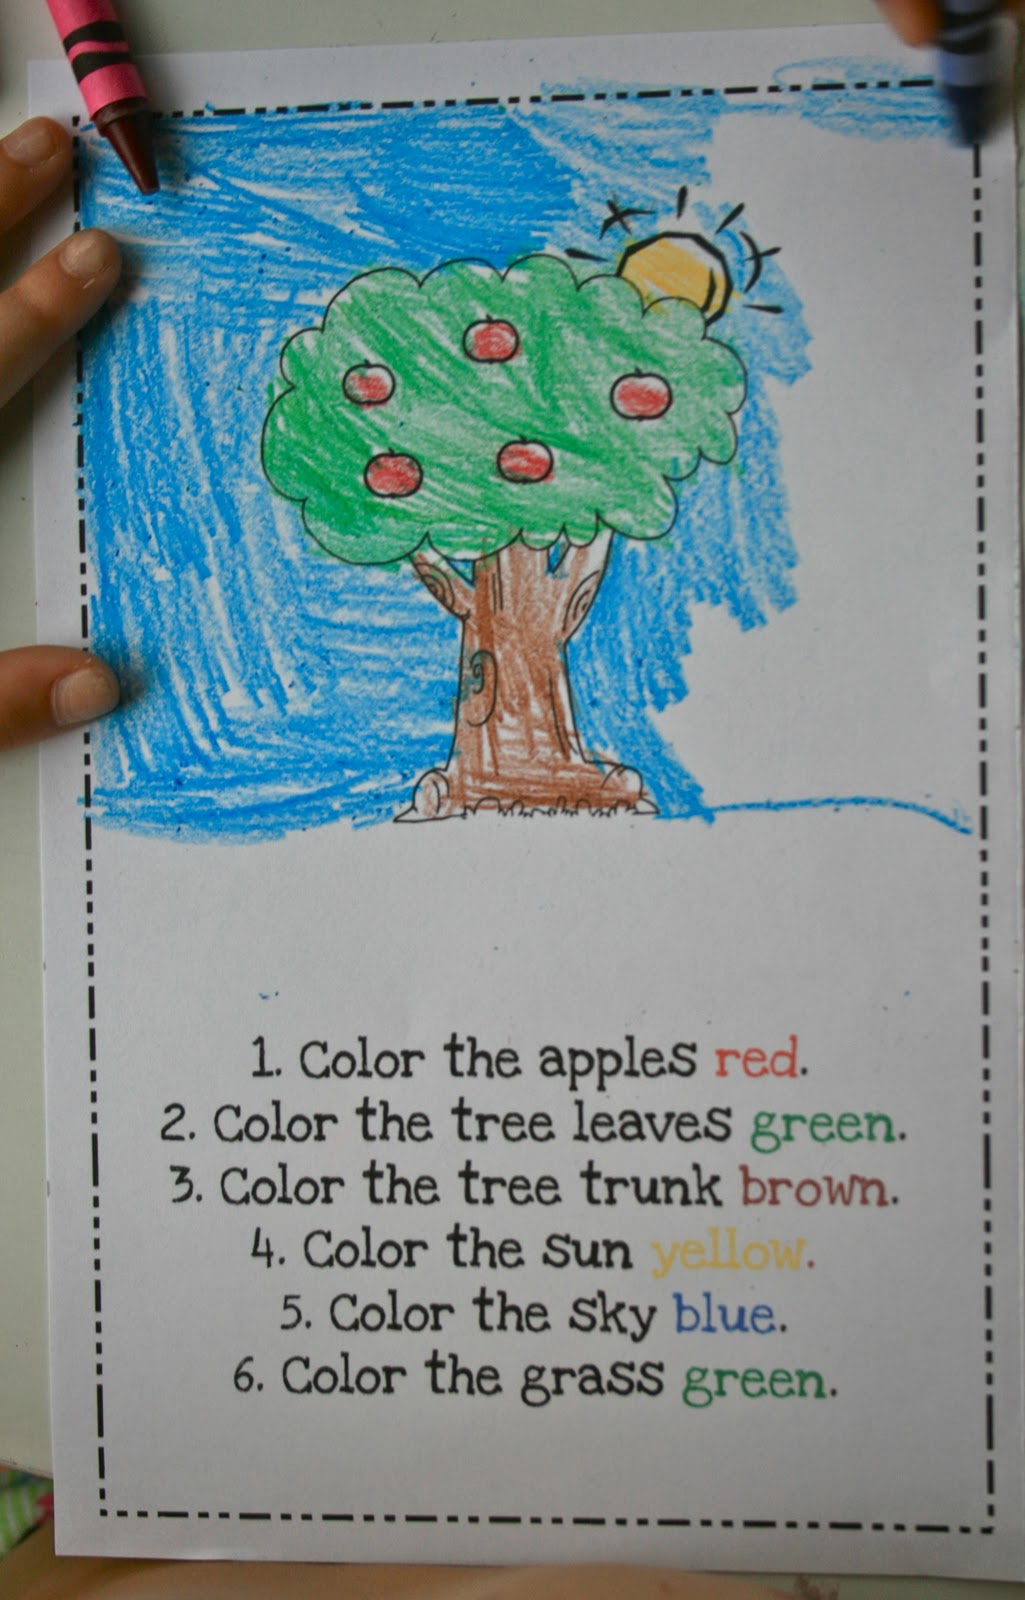 1. Color the apples red.
2. Color the tree leaves green.
3. Color the tree trunk brown.
4. Color the sun yellow.
5. Color the sky blue.
6. Color the grass green.